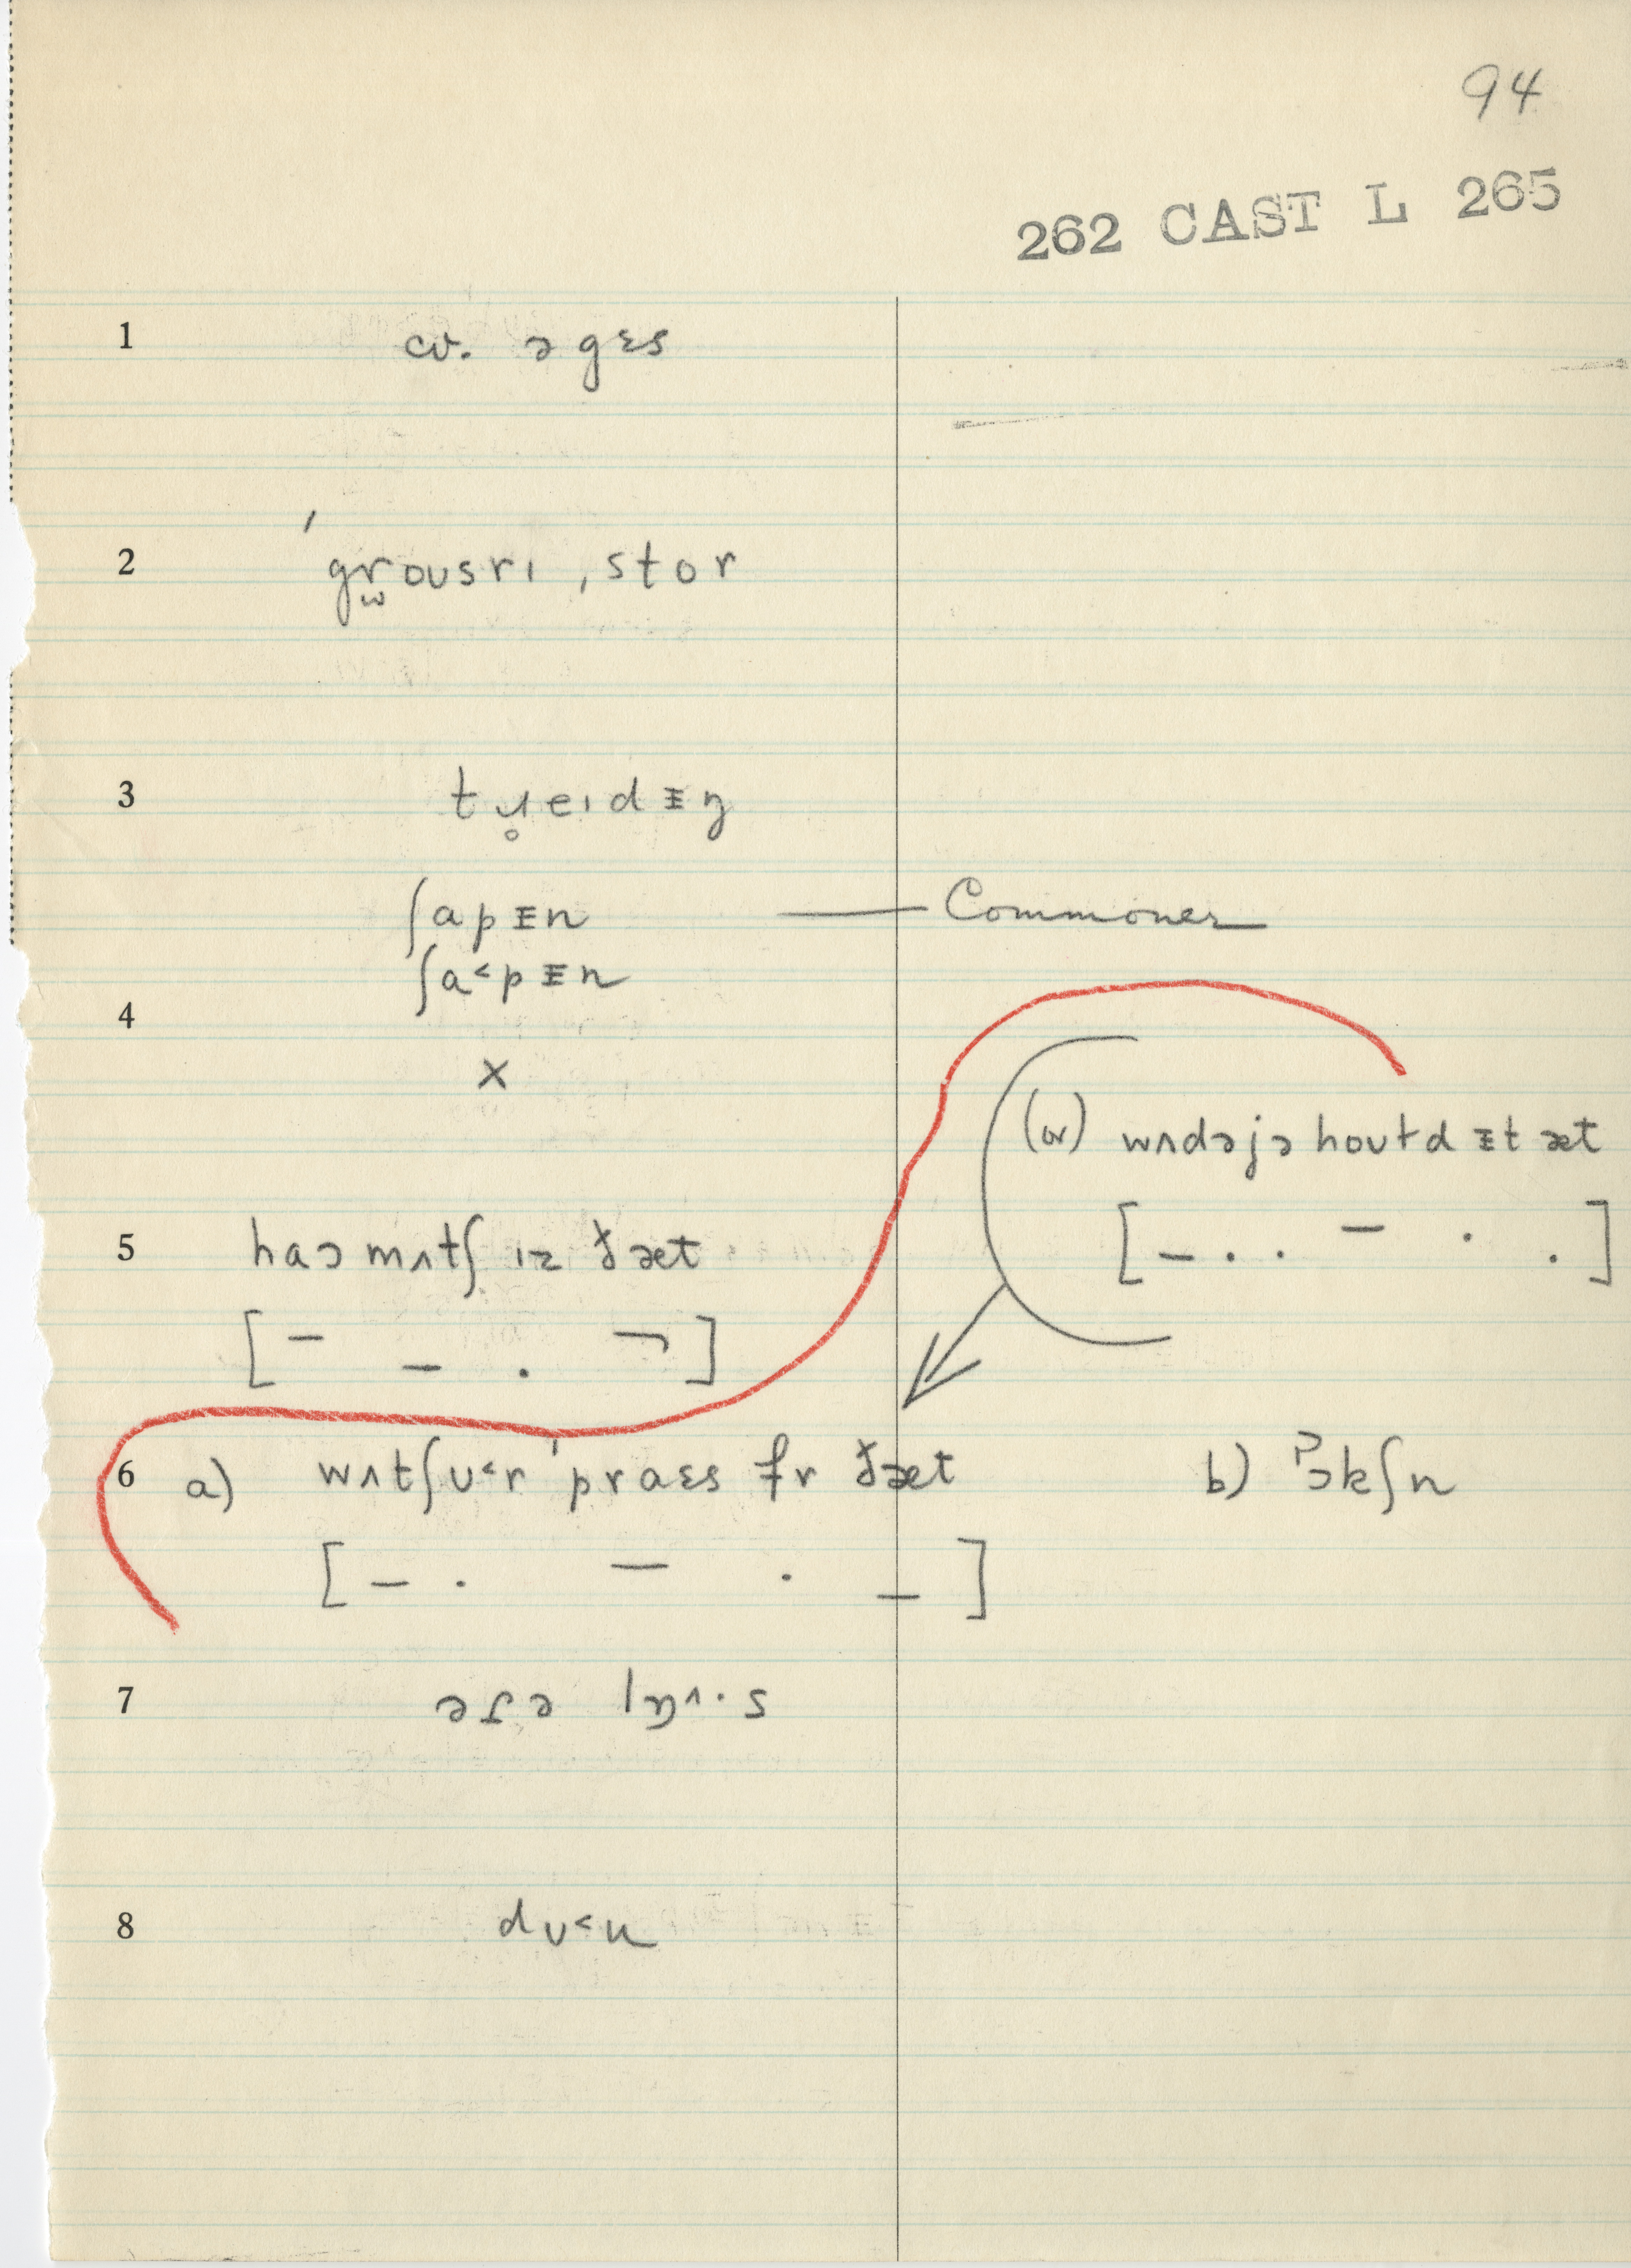 94
262 CAST L 265
1 cv. ə gɛs
2 ˈgrousrɪ, stor
3 tɹ̥eɪdᵻŋ
ʃapᵻn —— Commoner
ʃa˂pᵻn
4
x
(or) wʌdəjə houɫdᵻt æt
[– . . – . .]
5 haɔ mʌtʃ ɪz ðæt
[– – . ¬]
6 a) wʌtʃʊ˂r ˈpraɛs fr ðæt b) ɔkʃn
[– . – . –]
7
8 dʊ˂n